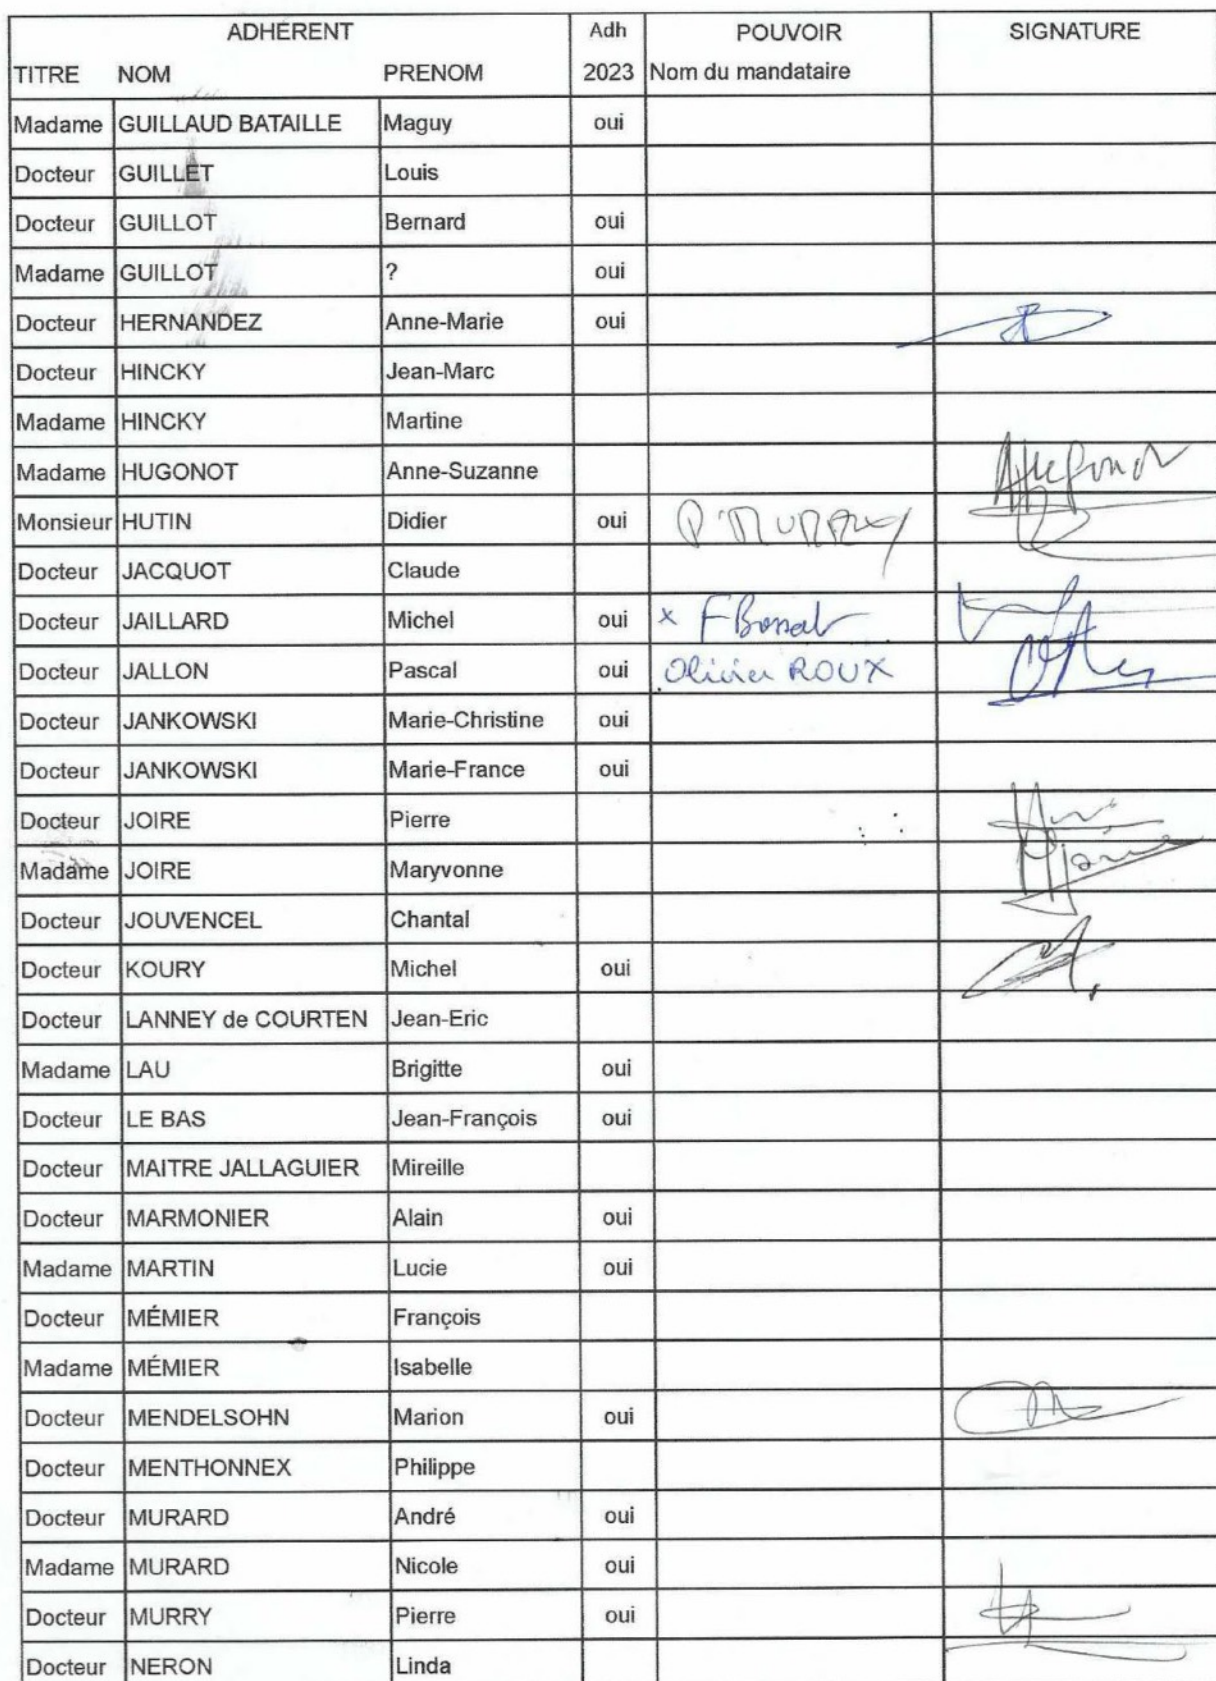 ADHÉRENT Adh POUVOIR SIGNATURE
TITRE NOM PRENOM 2023 Nom du mandataire
Madame GUILLAUD BATAILLE Maguy oui
Docteur GUILLET Louis
Docteur GUILLOT Bernard oui
Madame GUILLOT ? oui
Docteur HERNANDEZ Anne-Marie oui
Docteur HINCKY Jean-Marc
Madame HINCKY Martine
Madame HUGONOT Anne-Suzanne
Monsieur HUTIN Didier oui
Docteur JACQUOT Claude
Docteur JAILLARD Michel oui x F
Docteur JALLON Pascal oui Olivier ROUX
Docteur JANKOWSKI Marie-Christine oui
Docteur JANKOWSKI Marie-France oui
Docteur JOIRE Pierre
Madame JOIRE Maryvonne
Docteur JOUVENCEL Chantal
Docteur KOURY Michel oui
Docteur LANNEY de COURTEN Jean-Eric
Madame LAU Brigitte oui
Docteur LE BAS Jean-François oui
Docteur MAITRE JALLAGUIER Mireille
Docteur MARMONIER Alain oui
Madame MARTIN Lucie oui
Docteur MÉMIER François
Madame MÉMIER Isabelle
Docteur MENDELSOHN Marion oui
Docteur MENTHONNEX Philippe
Docteur MURARD André oui
Madame MURARD Nicole oui
Docteur MURRY Pierre oui
Docteur NERON Linda